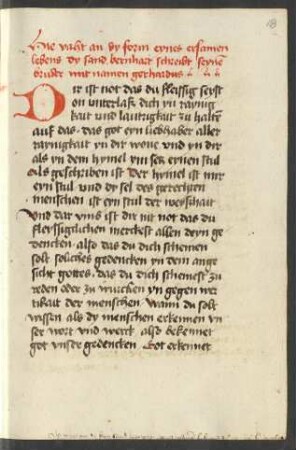 Hie vaht an dy form eynes ersamen
lebens dy sand bernhart schreibt seynē
bruder mit namen gerhardus
Dir ist not das du fleissig seyst
on unterlaß dich yn raynig
kait und lautrigkait zu halten
auf das das got eyn liebhaber aller
raynigkait yn dir wone und yn dir
als yn dem hymel yn seynen stul
Als geschriben ist Der hymel ist mir
eyn stul und dy sel des gerechten
menschen ist eyn stul der weyshait
Und dar vmb ist dir nit not das du
fleyssiglichen merckest allen deyn ge
dencken also das du dich schemen
solt soliches gedencken yn dem ange
sicht gottes das du dich schemest zu
reden oder zu wurcken yn gegen wer
tikait der menschen Wann du solt
wissen als dy menschen erkennen vn
ser wort und werck also bekennet
got vnser gedencken Got erkennet